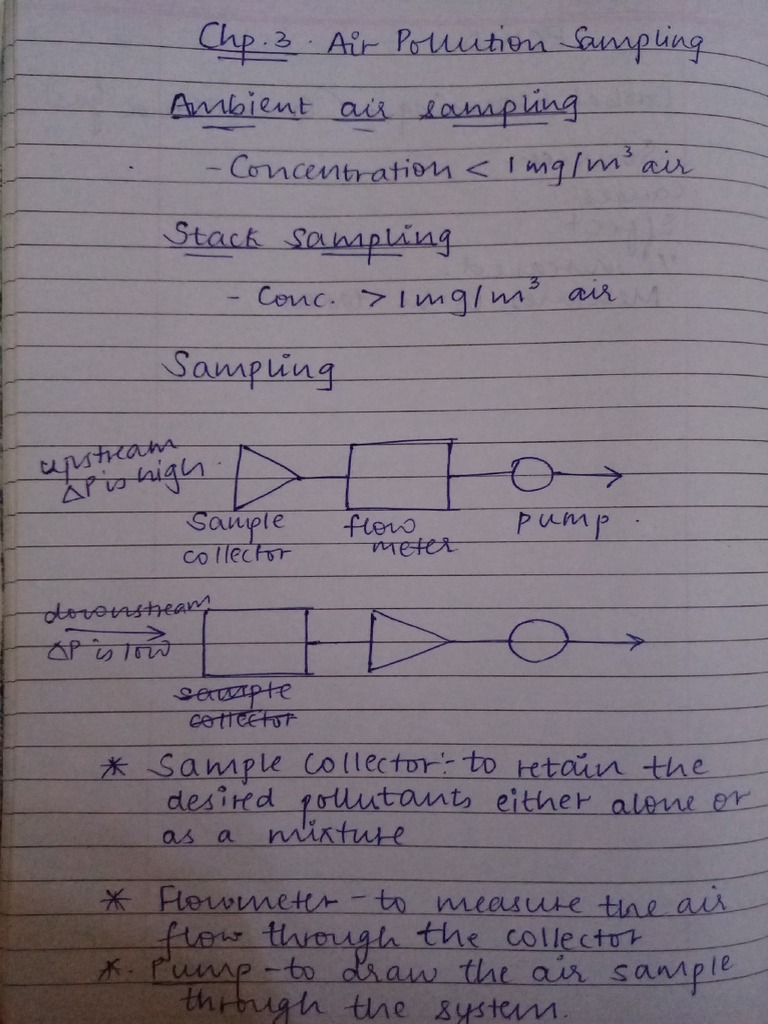 Chp.3. Air Pollution Sampling
Ambient air sampling
- Concentration < 1 mg/m³ air
Stack sampling
- Conc. > 1 mg/m³ air
Sampling
upstream
ΔP is high.
Sample collector
flow meter
pump.
downstream
ΔP is low
sample collector
* Sample collector:- to retain the
desired pollutants either alone or
as a mixture
* Flowmeter - to measure the air
flow through the collector
*. Pump - to draw the air sample
through the system.